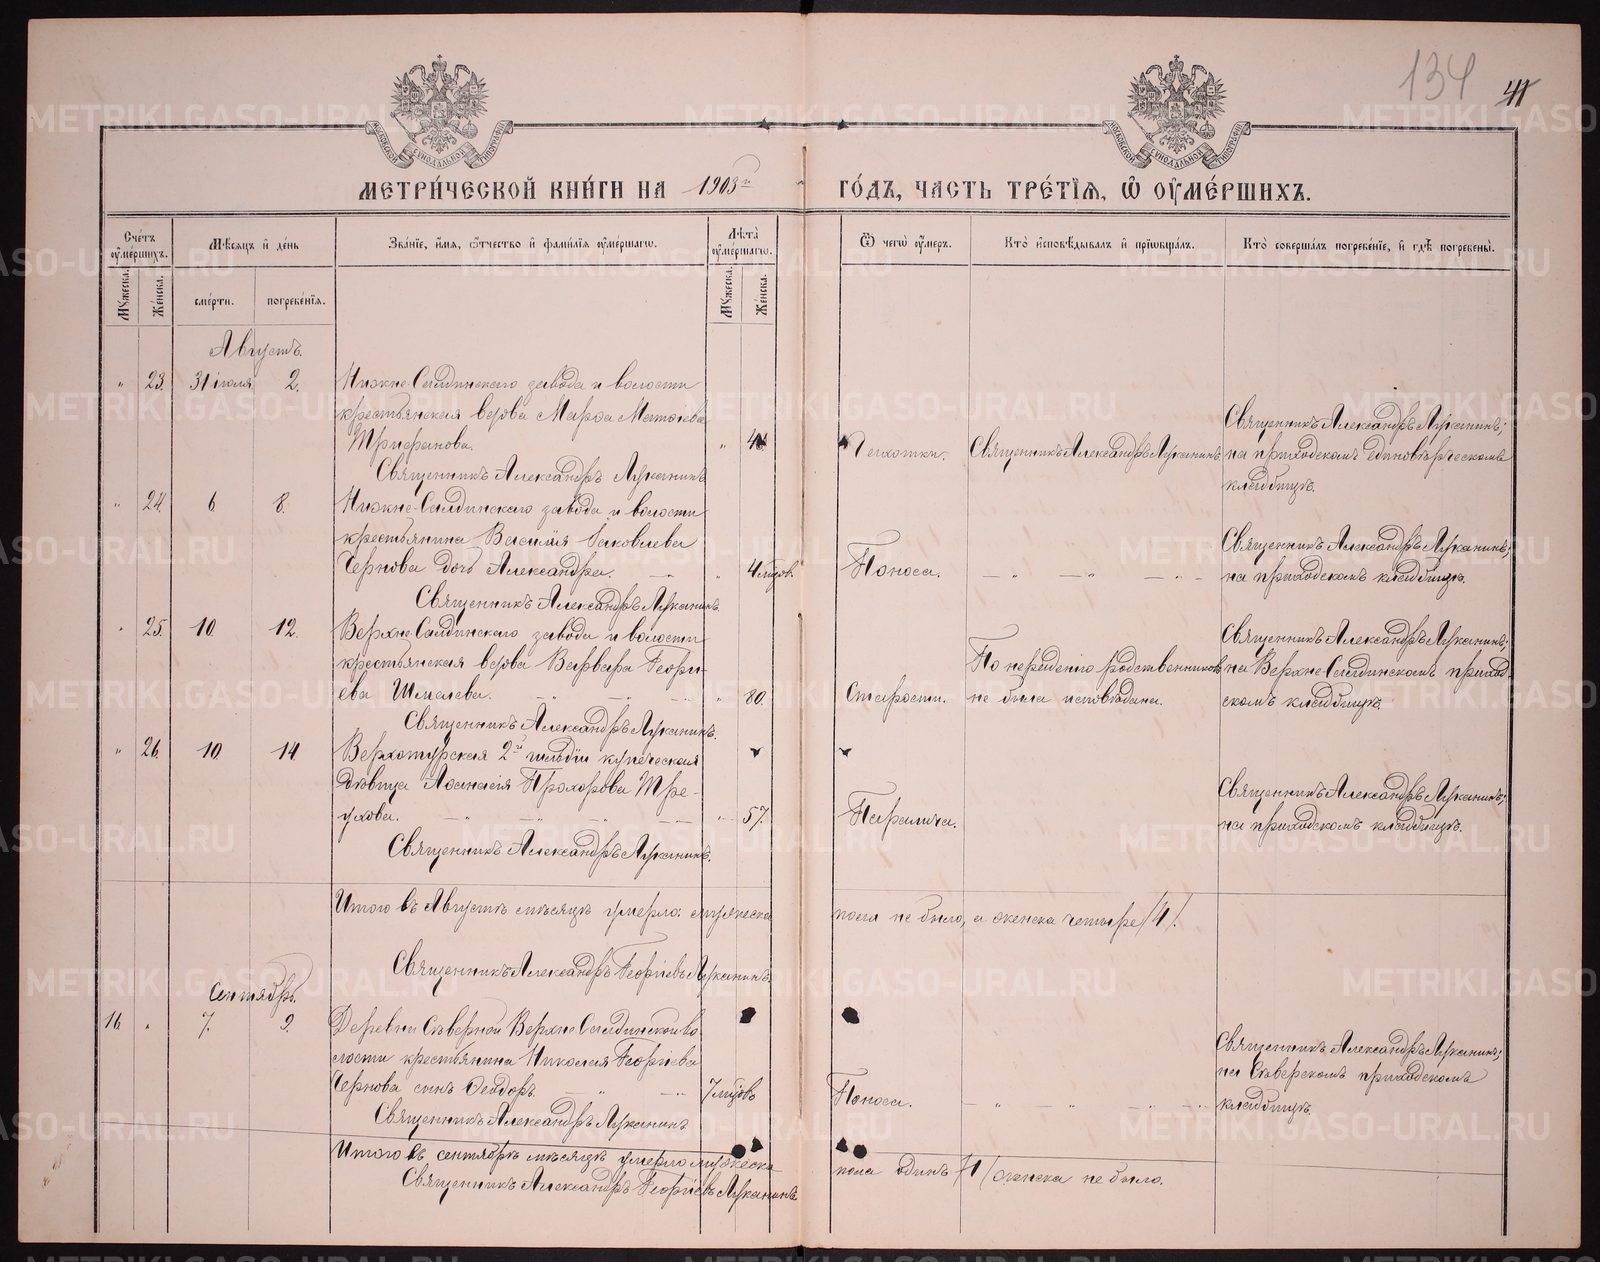 134 41
МОСКОВСКОЙ СѴНОДАЛЬНОЙ ТИПОГРАФІИ
МОСКОВСКОЙ СѴНОДАЛЬНОЙ ТИПОГРАФІИ
МЕТРИ́ЧЕСКОЙ КНИ́ГИ НА 1903й ГО́ДЪ, ЧАСТЬ ТРЕ́ТІѦ, Ѿ ОУМЕ́РШИХЪ.
Сче́тъ оуме́ршихъ.
Мѣ́сѧцъ и де́нь
Зва́нїе, и́мѧ, ѻ́тчество и фами́лїѧ оуме́ршагѡ.
Лѣта̀ оуме́ршагѡ.
Ѿ чегѡ̀ оу́меръ.
Кто̀ и҆сповѣ́дывалъ и҆ прїѡбща́лъ.
Кто̀ соверша́лъ погребе́нїе, и҆ гдѣ̀ погребены̀.
Мꙋжеска.
Же́нска.
сме́рти.
погребе́нїѧ.
Мꙋжеска.
Же́нска.
Августъ.
" 23. 31 іюля 2. Нижне-Салдинскаго завода и волости
крестьянская вдова Марѳа Матѳіева
Трифанова. "
Священникъ Александръ Луканинъ
Чахотки.
Священникъ Александръ Луканинъ
Священникъ Александръ Луканинъ;
на приходскомъ единовѣрческомъ
кладбищѣ.
" 24. 6 8. Нижне-Салдинскаго завода и волости
крестьянина Василія Іаковлева
Чернова дочь Александра. — " 4 мѣсяц.
Священникъ Александръ Луканинъ.
Поноса. — " — " — " —
Священникъ Александръ Луканинъ;
на приходскомъ кладбищѣ.
" 25. 10. 12. Верхне-Салдинскаго завода и волости
крестьянская вдова Варвара Георгі-
ева Шмалева. " 80.
Священникъ Александръ Луканинъ.
Старости.
По нерадѣнію родственниковъ
не была исповѣдана.
Священникъ Александръ Луканинъ;
на Верхне-Салдинскомъ приход-
скомъ кладбищѣ.
" 26. 10. 14. Верхотурская 2й гильдіи купеческая
дѣвица Аѳанасія Прохорова Тре-
ухова. " 57.
Священникъ Александръ Луканинъ.
Паралича.
Священникъ Александръ Луканинъ;
на приходскомъ кладбищѣ.
Итого въ Августѣ мѣсяцѣ умерло: мужеска пола не было, а женска четыре /4/.
Священникъ Александръ Георгіевъ Луканинъ.
Сентябрь.
16. " 7. 9. Деревни Сѣверной Верхне-Салдинской во-
лости крестьянина Николая Георгіева
Чернова сынъ Ѳеодоръ. 7 мѣсяцовъ
Священникъ Александръ Луканинъ
Поноса. — "
Священникъ Александръ Луканинъ;
на Сѣверскомъ приходскомъ
кладбищѣ.
Итого въ сентябрѣ мѣсяцѣ умерло мужеска пола одинъ /1/ женска не было.
Священникъ Александръ Георгіевъ Луканинъ
METRIKI.GASO-URAL.RU